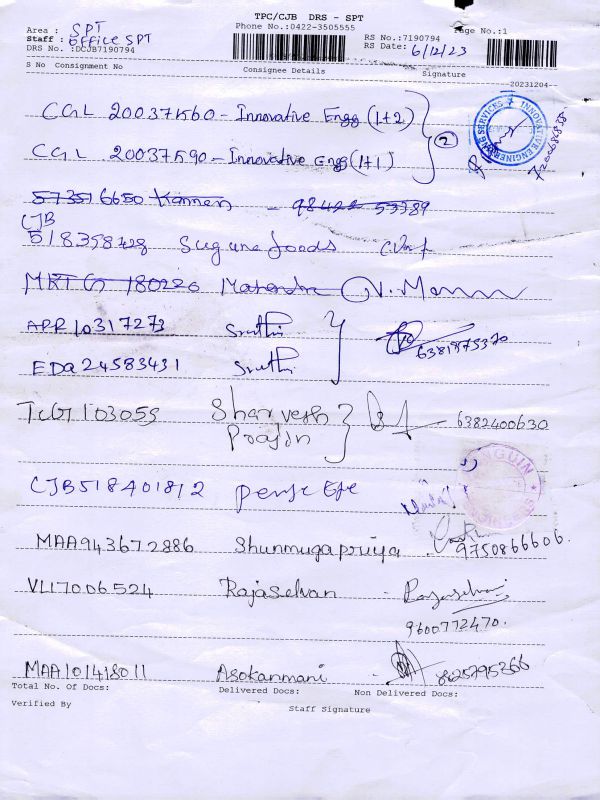 TPC/CJB DRS - SPT
Phone No.:0422-3505555
Area : SPT
Staff : Office SPT
DRS No. :DCJB7190794
RS No.:7190794
RS Date: 6/12/23
Page No.:1
S No Consignment No Consignee Details Signature
20231204-
CGL 20037560 - Innovative Engg (1+2)
②
CGL 20037590 - Innovative Engg (1+1)
INNOVATIVE ENGINEERING SERVICES
573516650 Kannan 98422 53389
CJB
518358728 Suguna foods
MKT G 180226 Mahendra
APR 10317273 Sruthi
6381875370
EDA 24583431 Sruthi
TCG1103055 Sharvesh 6382400630
Prajin
CJB518401812
MAA943672886 Shunmugapriya 9750866606.
VLI7006524 Rajaselvan - Rajaselvan
9600772470.
MAA101418011 Asokanmani 8625795266
Total No. Of Docs: Delivered Docs: Non Delivered Docs:
Verified By Staff Signature